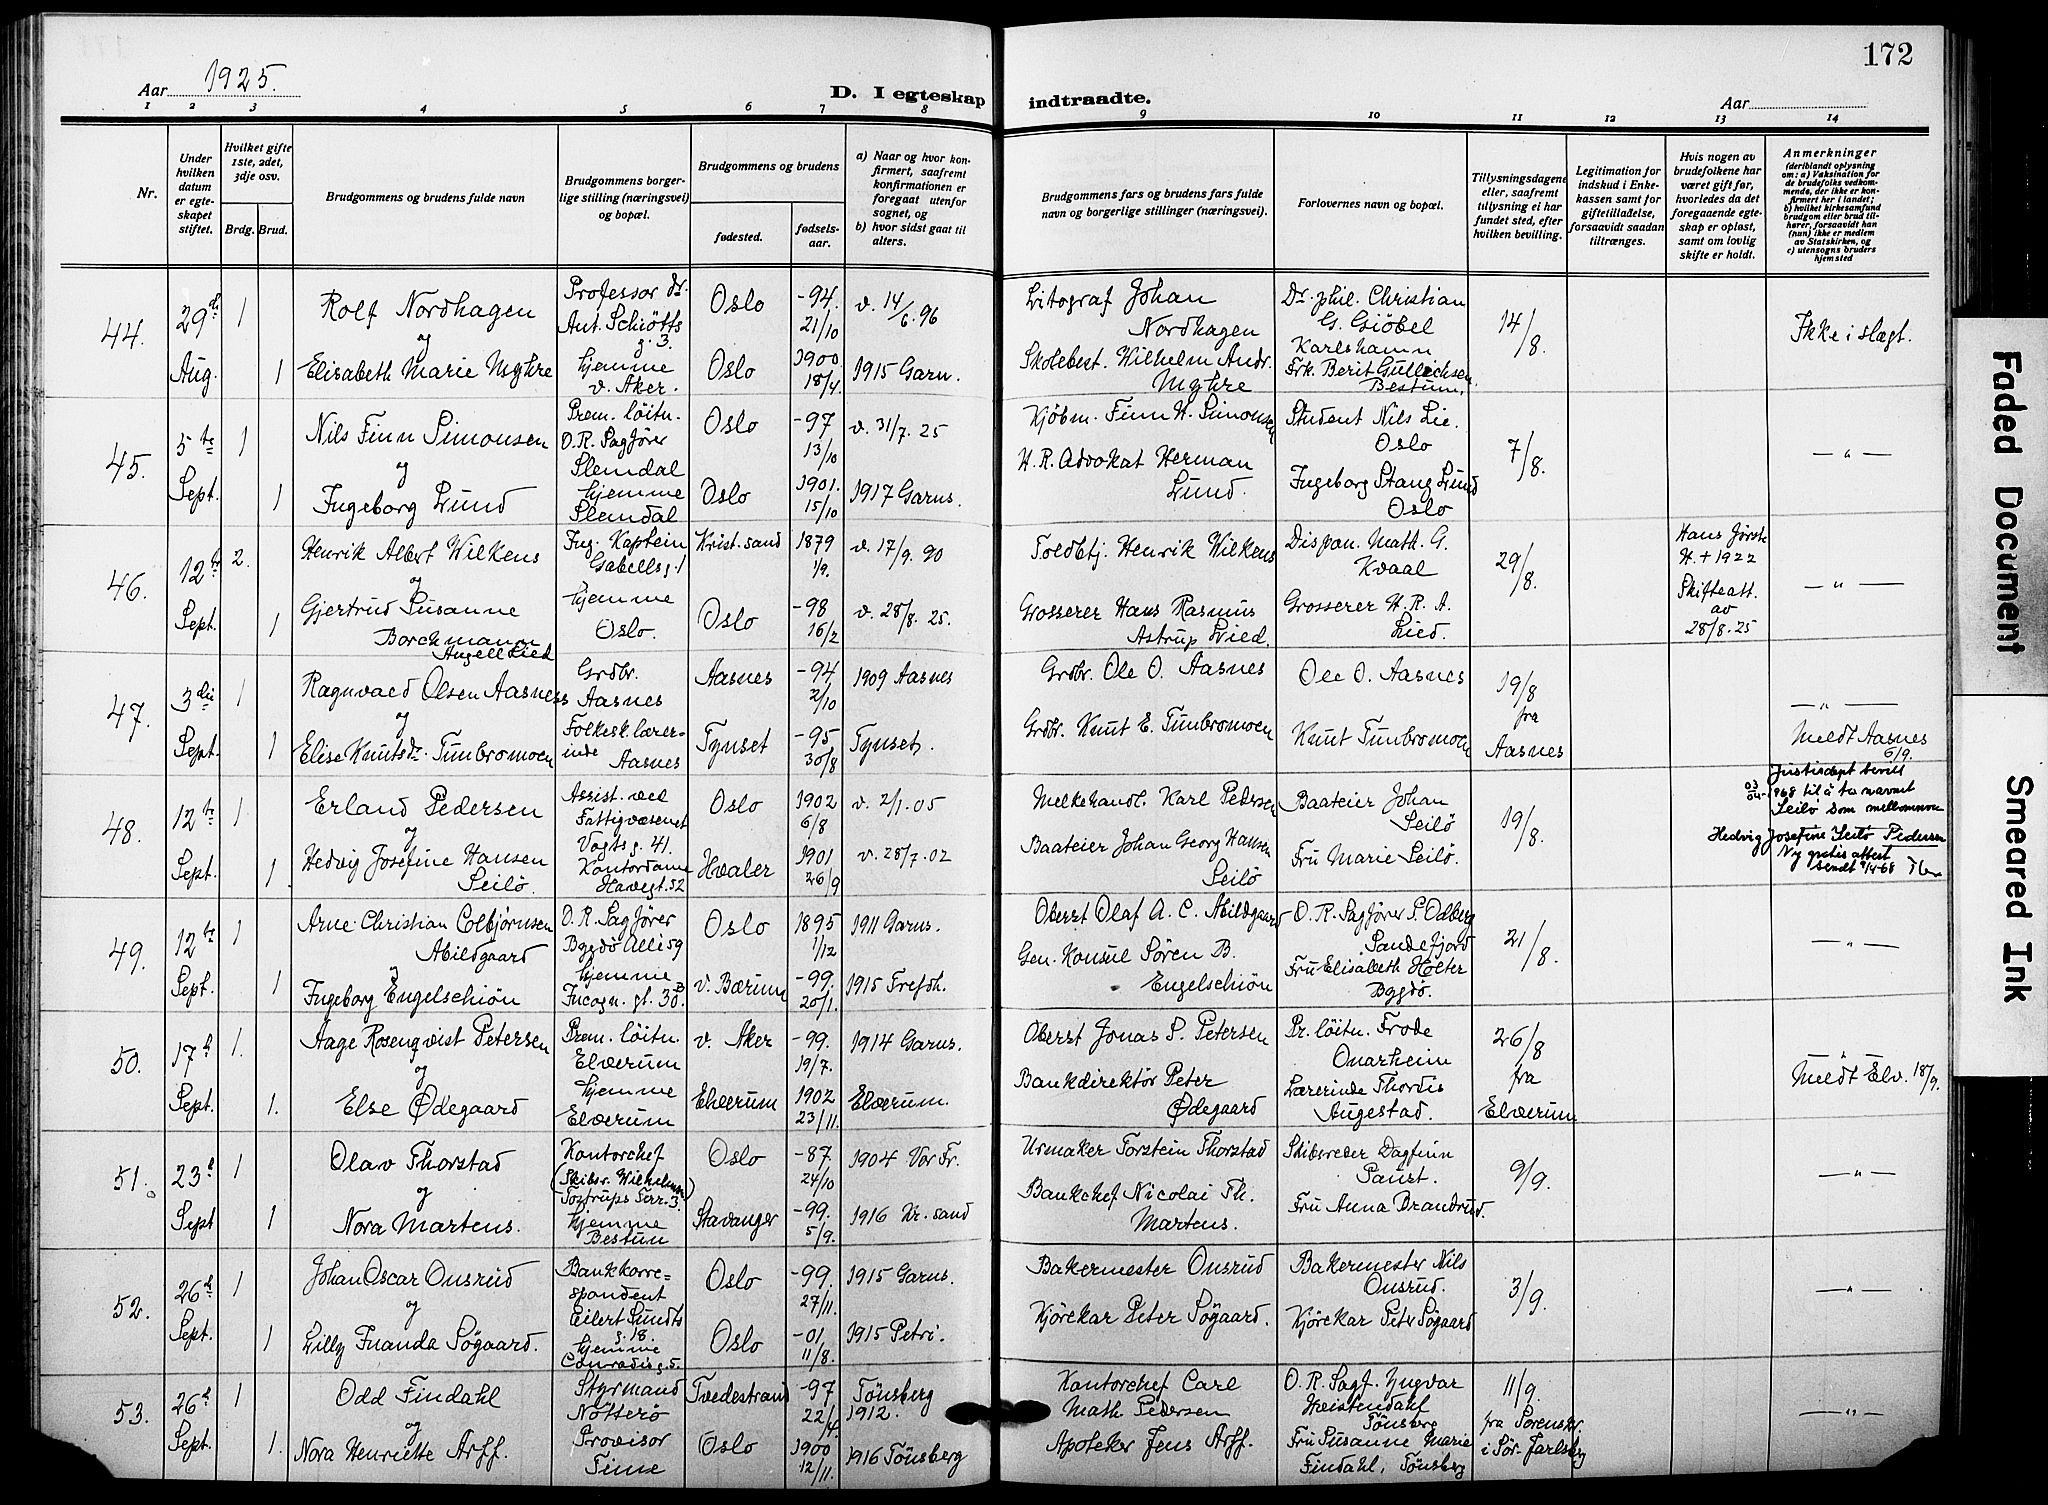 172
Aar 1925.
D. I egteskap indtraadte.
Aar
1 2 3 4 5 6 7 8 9 10 11 12 13 14
Nr.
Under hvilken datum er egteskapet stiftet.
Hvilket gifte 1ste, 2det, 3dje osv.
Brdg. Brud.
Brudgommens og brudens fulde navn
Brudgommens borgerlige stilling (næringsvei) og bopæl.
Brudgommens og brudens
fødested.
fødselsaar.
a) Naar og hvor konfirmert, saafremt konfirmationen er foregaat utenfor sognet, og
b) hvor sidst gaat til alters.
Brudgommens fars og brudens fars fulde navn og borgerlige stillinger (næringsvei).
Forlovernes navn og bopæl.
Tillysningsdagene eller, saafremt tillysning ei har fundet sted, efter hvilken bevilling.
Legitimation for indskud i Enkekassen samt for giftetilladelse, forsaavidt saadan tiltrænges.
Hvis nogen av brudefolkene har været gift før, hvorledes da det foregaaende egteskap er opløst, samt om lovlig skifte er holdt.
Anmerkninger
(deriblandt oplysning om: a) Vaksination for de brudefolks vedkommende, der ikke er konfirmert her i landet;
b) hvilket kirkesamfund brudgom eller brud tilhører, forsaavidt han (hun) ikke er medlem av Statskirken, og
c) utensogns bruders hjemsted
44. 29de Aug. 1
Rolf Nordhagen
og
Professor dr.
Ant. Schiøtts
g. 3.
Oslo
-94.
21/10
v. 14/6. 96
Litograf Johan
Nordhagen
Dr. phil. Christian
G. Giöbel
Karlshamn
14/8.
Ikke i slegt.
1 Elisabeth Marie Myhre
hjemme
v. Aker.
Oslo
1900
18/4.
1915 Garn.
Skolebest. Wilhelm Andr.
Myhre
Frk. Berit Gullichsen
Bestum.
45. 5te Sept. 1
Nils Finn Simonsen
og
Prem. löitn.
O.R. Sagfører
Slemdal
Oslo
-97
13/10
v. 31/7. 25
Kjöbm. Finn H. Simonsen
Student Nils Lie.
Oslo
7/8.
— " —
1 Ingeborg Lund
hjemme
Slemdal
Oslo
1901.
15/10
1917 Garns.
H. R. Advokat Herman
Lund.
Ingeborg Stang Lund
Oslo
46. 12te Sept. 2.
Henrik Albert Wilkens
og
Ing. Kaptein
Gabelsg. 1
Krist.sand
1879
1/9.
v. 17/9. 90
Toldbtj. Henrik Wilkens
Dispon. Math. G.
Kvaal
29/8.
H. + 1922
Skifteatt.
av
28/8.25
— " —
1 Gjertrud Susanne
Borchmann
Angell Lied
hjemme
Oslo.
Oslo
-98
16/2
v. 28/8. 25.
Grosserer Hans Rasmus
Astrup Lied.
Grosserer H. R. A.
Lied.
47. 3die Sept. 1
Ragnvald Olsen Aasness
og
Grdbr.
Aasnes
Aasnes
-94
2/10
1909 Aasnes
Grdbr. Ole O. Aasnes
Ole O. Aasnes
19/8
fra
Aasnes
— " —
Meldt Aasnes
6/9.
1 Elise Knutsdr. Tunbromoen
Folkesk.lærer-
inde
Aasnes
Tynset
-95
30/8
Tynset.
Grdbr. Knut E. Tunbromoen
Knut Tunbromoen
48. 12te Sept. 1
Erland Pedersen
og
Assist. ved
Fattigvæsenet
Vogts g. 41.
Oslo
1902
6/8
v. 2/1. 05
Melkehandl. Karl Pedersen
Baateier Johan
Seilö
19/8.
Seilö som mellomnavn
Hedvig Josefine Seilö Pedersen
Ny gratis attest
1 Hedvig Josefine Hansen
Seilö.
Kontordame
Havegt. 52
Hvaler
1901
26/9
v. 28/7. 02
Baateier Johan Georg Hansen
Seilö
Fru Marie Seilö.
49. 12te Sept. 1
Arne Christian Colbjørnsen
Abildgaard
og
O. R. Sagfører
Bygdö Alle 59
Oslo
1895
1/12
1911 Garns.
Oberst Olaf A. C. Abildgaard
O. R. Sagfører S. Odberg
Sandefjord
21/8.
— " —
1 Ingeborg Engelschiön
hjemme
Incogn. gt. 30B
v. Bærum
-99.
20/1.
1915 Trefdh.
Gen. Konsul Sören B.
Engelschiön
Fru Elisabeth Holter
Bygdö.
50. 17d Sept. 1.
Aage Rosenqvist Petersen
og
Prem. löitn.
Elverum
v. Aker
-99.
19/7.
1914 Garns.
Oberst Jonas S. Petersen
Pr. löitn. Frode
Onarheim
26/8
fra
Elverum
Meldt Elv. 18/9.
1. Else Ødegaard
hjemme
Elverum
Elverum
1902
23/11.
Elverum.
Bankdirektör Peter
Ødegaard
Lærerinde Thordis
Augestad.
51. 23d Sept 1
Olav Thorstad
og
Kontorchef
(Skibsr. Wilhelmsen)
Tostrups Terr. 3.
Oslo
-87
24/10
1904 Vor Fr.
Urmaker Torstein Thorstad
Skibsreder Dagfinn
Paust.
9/9.
— " —
1 Nora Martens.
hjemme
Bestun
Stavanger
-99.
5/9.
1916 Kr. sand
Bankchef Nicolai Th.
Martens.
Fru Anna Brandrud.
52. 26d Sept. 1
Johan Oscar Onsrud
og
Bankkorre=
spondent
Eilert Sundts
g. 18.
Oslo
-99.
27/11.
1915 Garns.
Bakermester Onsrud
Bakermester Nils
Onsrud.
3/9.
— " —
1 Lilly Iuanda Søgaard.
hjemme
Conradis g. 5.
Oslo
-01.
11/8.
1915 Petri.
Kjörekar Peter Søgaard.
Kjörekar Peter Søgaard
53. 26d Sept. 1
Odd Findahl
og
Styrmand
Nötterö
Tvedestrand
-97
22/4.
Tönsberg
1912.
Kontorchef Carl
Math. Pedersen
O. R. Sagf. Yngvar
Heistendahl
Tönsberg
11/9.
fra Sorenskr.
i Sör. Jarlsberg
— " —
1. Nora Henriette Arff.
Provisor
Time
Oslo
1900
12/11.
1916 Tönsberg
Apoteker Jens Arff.
Fru Susanne Marie
Findahl, Tönsberg
Faded Document
Smeared Ink